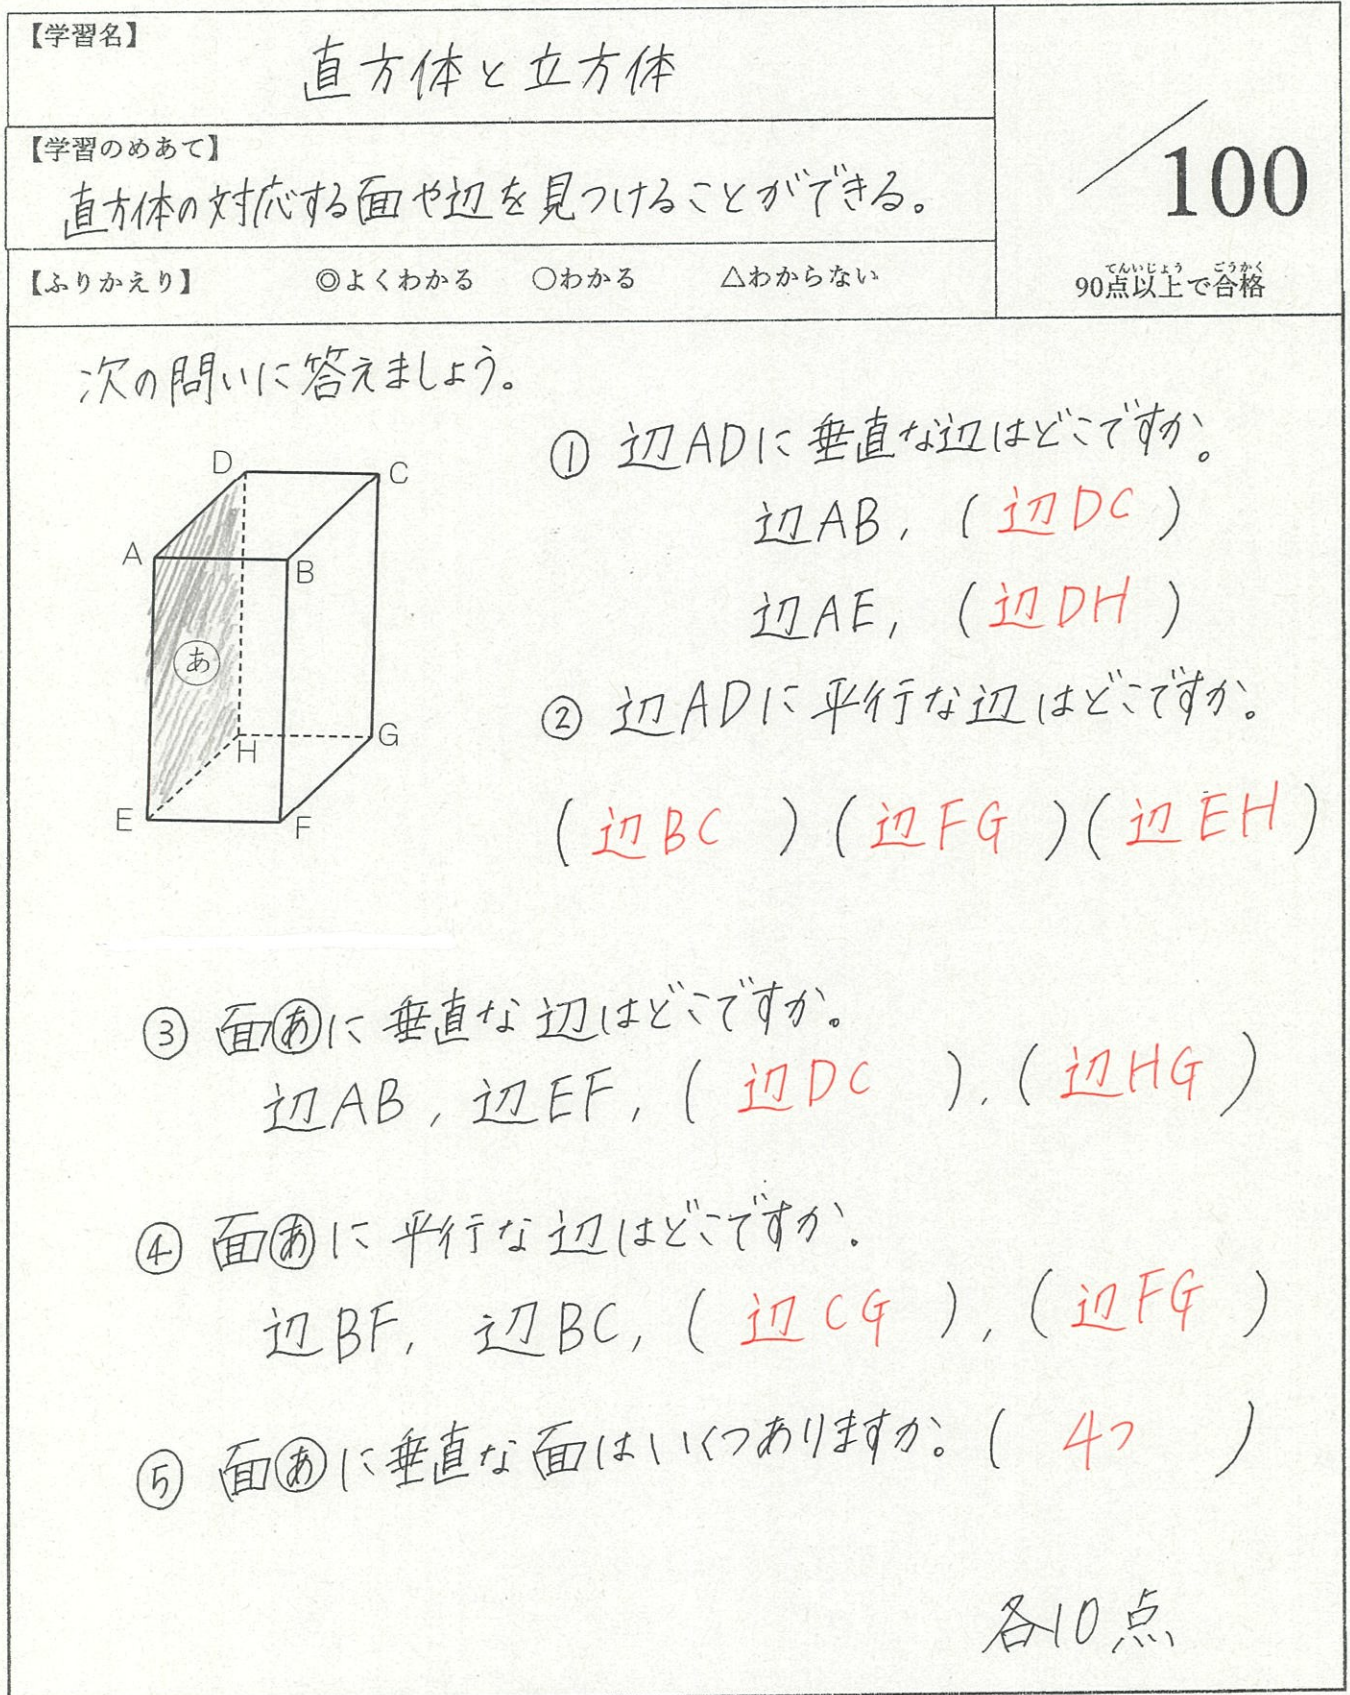 【学習名】
直方体と立方体
【学習のめあて】
直方体の対応する面や辺を見つけることができる。
／100
【ふりかえり】 ◎よくわかる ○わかる △わからない
てんいじょう ごうかく
90点以上で合格
次の問いに答えましょう。
D
C
A
B
あ
H
G
E
F
① 辺ADに垂直な辺はどこですか。
辺AB, (辺DC)
辺AE, (辺DH)
② 辺ADに平行な辺はどこですか。
(辺BC)(辺FG)(辺EH)
③ 面あに垂直な辺はどこですか。
辺AB, 辺EF, (辺DC), (辺HG)
④ 面あに平行な辺はどこですか。
辺BF, 辺BC, (辺CG), (辺FG)
⑤ 面あに垂直な面はいくつありますか。(4つ)
各10点